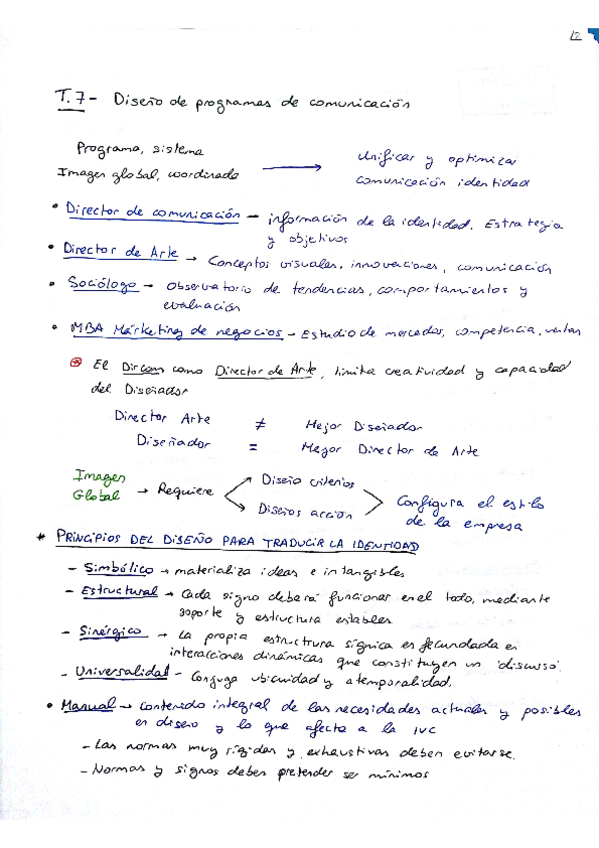 12
T.7 - Diseño de programas de comunicación
Programa, sistema
Imagen global, coordinada → Unificar y optimizar
comunicación identidad
• Director de comunicación → información de la identidad. Estrategia
y objetivos
• Director de Arte → Conceptos visuales, innovaciones, comunicación
• Sociólogo → Observatorio de tendencias, comportamientos y
evaluación
• MBA Márketing de negocios → Estudio de mercados, competencia, ventas
El Dircom como Director de Arte, limita creatividad y capacidad
del Diseñador
Director Arte ≠ Mejor Diseñador
Diseñador = Mejor Director de Arte
Imagen
Global → Requiere
Diseño criterios
Diseños acción
Configura el estilo
de la empresa
* PRINCIPIOS DEL DISEÑO PARA TRADUCIR LA IDENTIDAD
- Simbólico → materializa ideas e intangibles
- Estructural → Cada signo deberá funcionar en el todo, mediante
soporte y estructura estables
- Sinérgico → La propia estructura sígnica es fecundada en
interacciones dinámicas que constituyen un 'discurso'.
- Universalidad - Conjuga ubicuidad y atemporalidad.
• Manual → contenido integral de las necesidades actuales y posibles
en diseño y lo que afecta a la IVC
- Las normas muy rígidas y exhaustivas deben evitarse.
- Normas y signos deben pretender ser mínimos